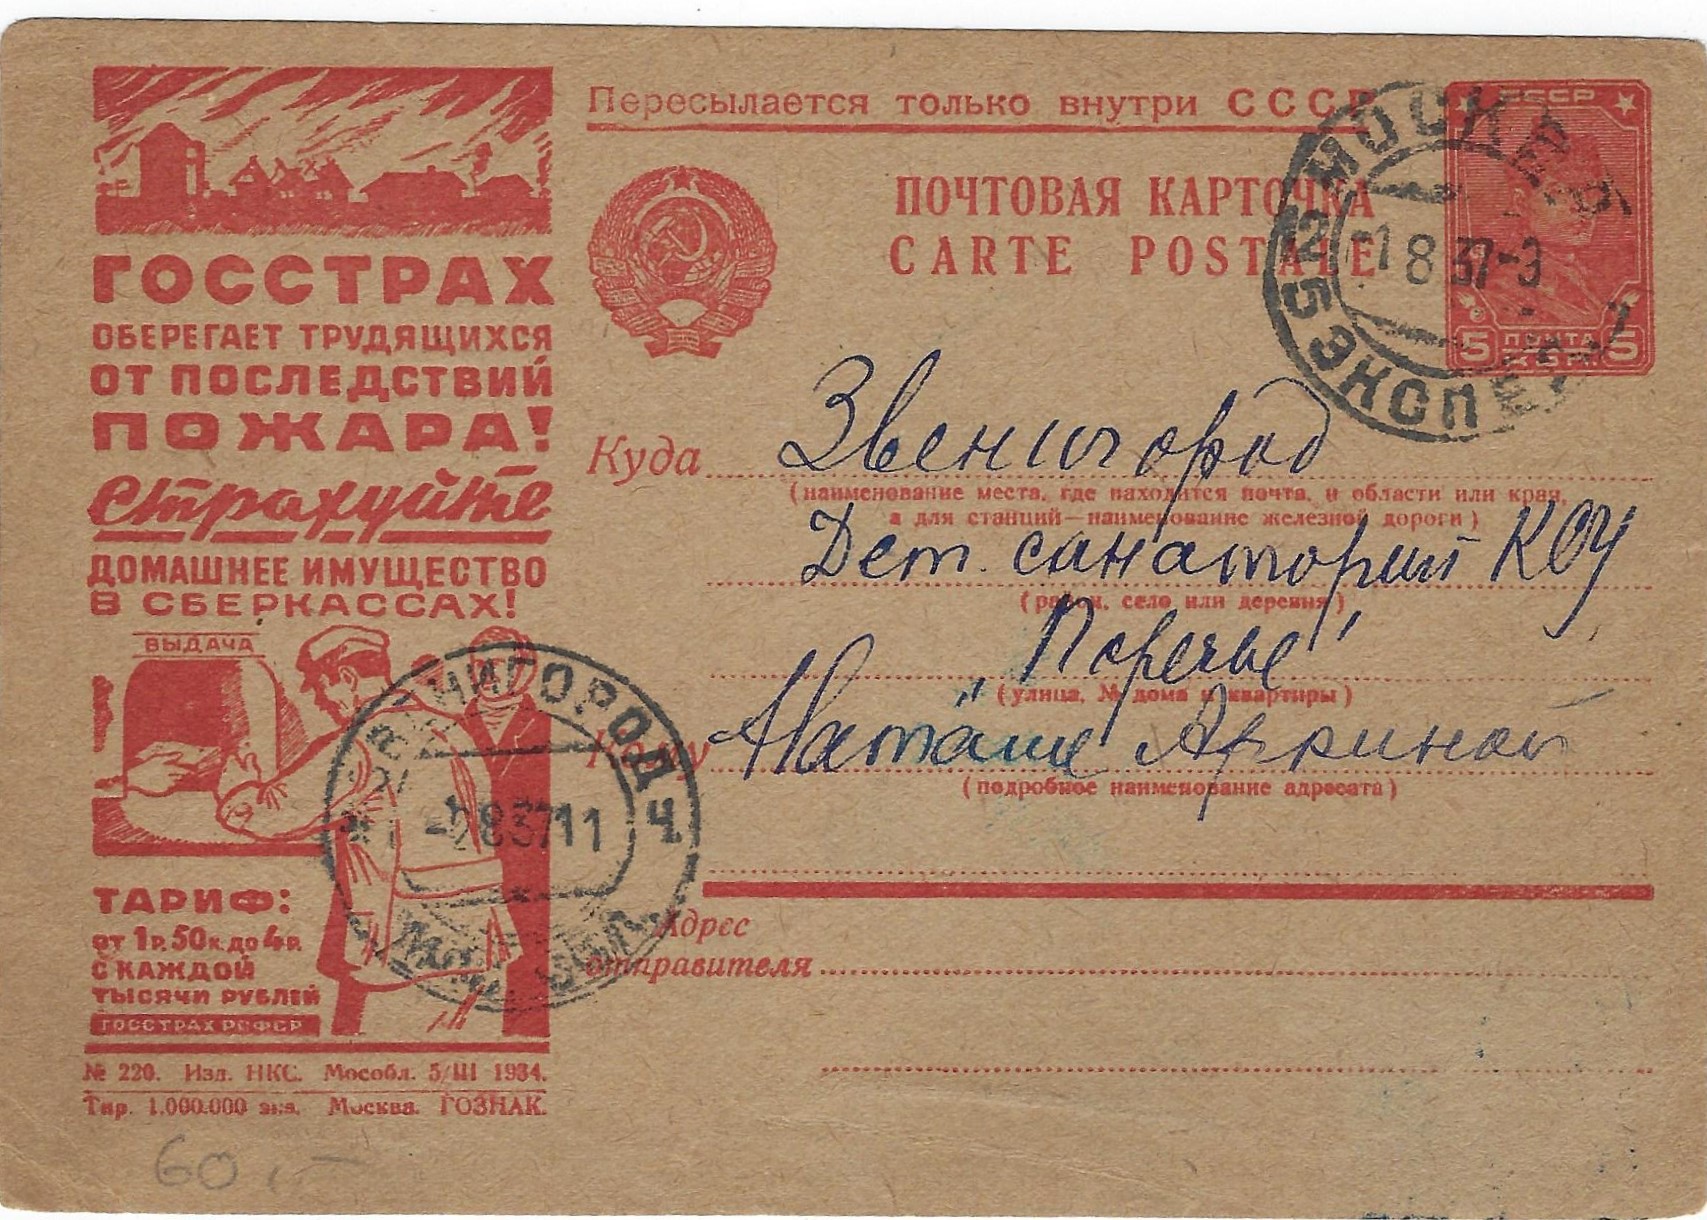 ГОССТРАХ
ОБЕРЕГАЕТ ТРУДЯЩИХСЯ
ОТ ПОСЛЕДСТВИЙ
ПОЖАРА!
Страхуйте
ДОМАШНЕЕ ИМУЩЕСТВО
В СБЕРКАССАХ!
ВЫДАЧА
ТАРИФ:
от 1 р. 50 к. до 4 р.
С КАЖДОЙ
ТЫСЯЧИ РУБЛЕЙ
ГОССТРАХ РСФСР
№ 220. Изд. НКС. Мособл. 5/III 1934.
Тир. 1.000.000 экз. Москва. ГОЗНАК.
60.—
Пересылается только внутри СССР
ПОЧТОВАЯ КАРТОЧКА
CARTE POSTALE
СССР
5 ПОЧТА 5
МОСКВА
1 8 37-3
25 ЭКСПЕД
Куда Звенигород
(наименование места, где находится почта, и области или края,
а для станций—наименование железной дороги)
Дет. санаторий КСУ
(район, село или деревня)
„Поречье"
(улица, № дома и квартиры)
Кому Наташе
(подробное наименование адресата)
ЗВЕНИГОРОД
-2 8 37 11
Ч
Адрес
отправителя